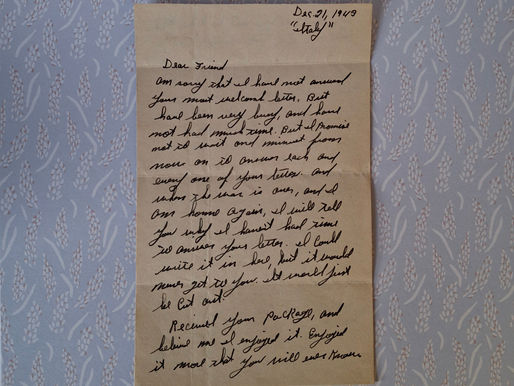 Dec. 21, 1943
"Italy"
Dear Friend
am sorry that I have not answed
your most welcomb letter. But
have been very busy, and have
not had much time. But I Promise
not to wait one minuet from
now on to answer each and
every one of your letter. and
when the war is over, and I
am home again, I will tell
you why I haven't had time
to answer your letter. I Could
write it in here, but it would
never get to you. itt would just
be Cut out.
Received your package, and
believe me I enjoyed it. Enjoyed
it more that you will ever Know.